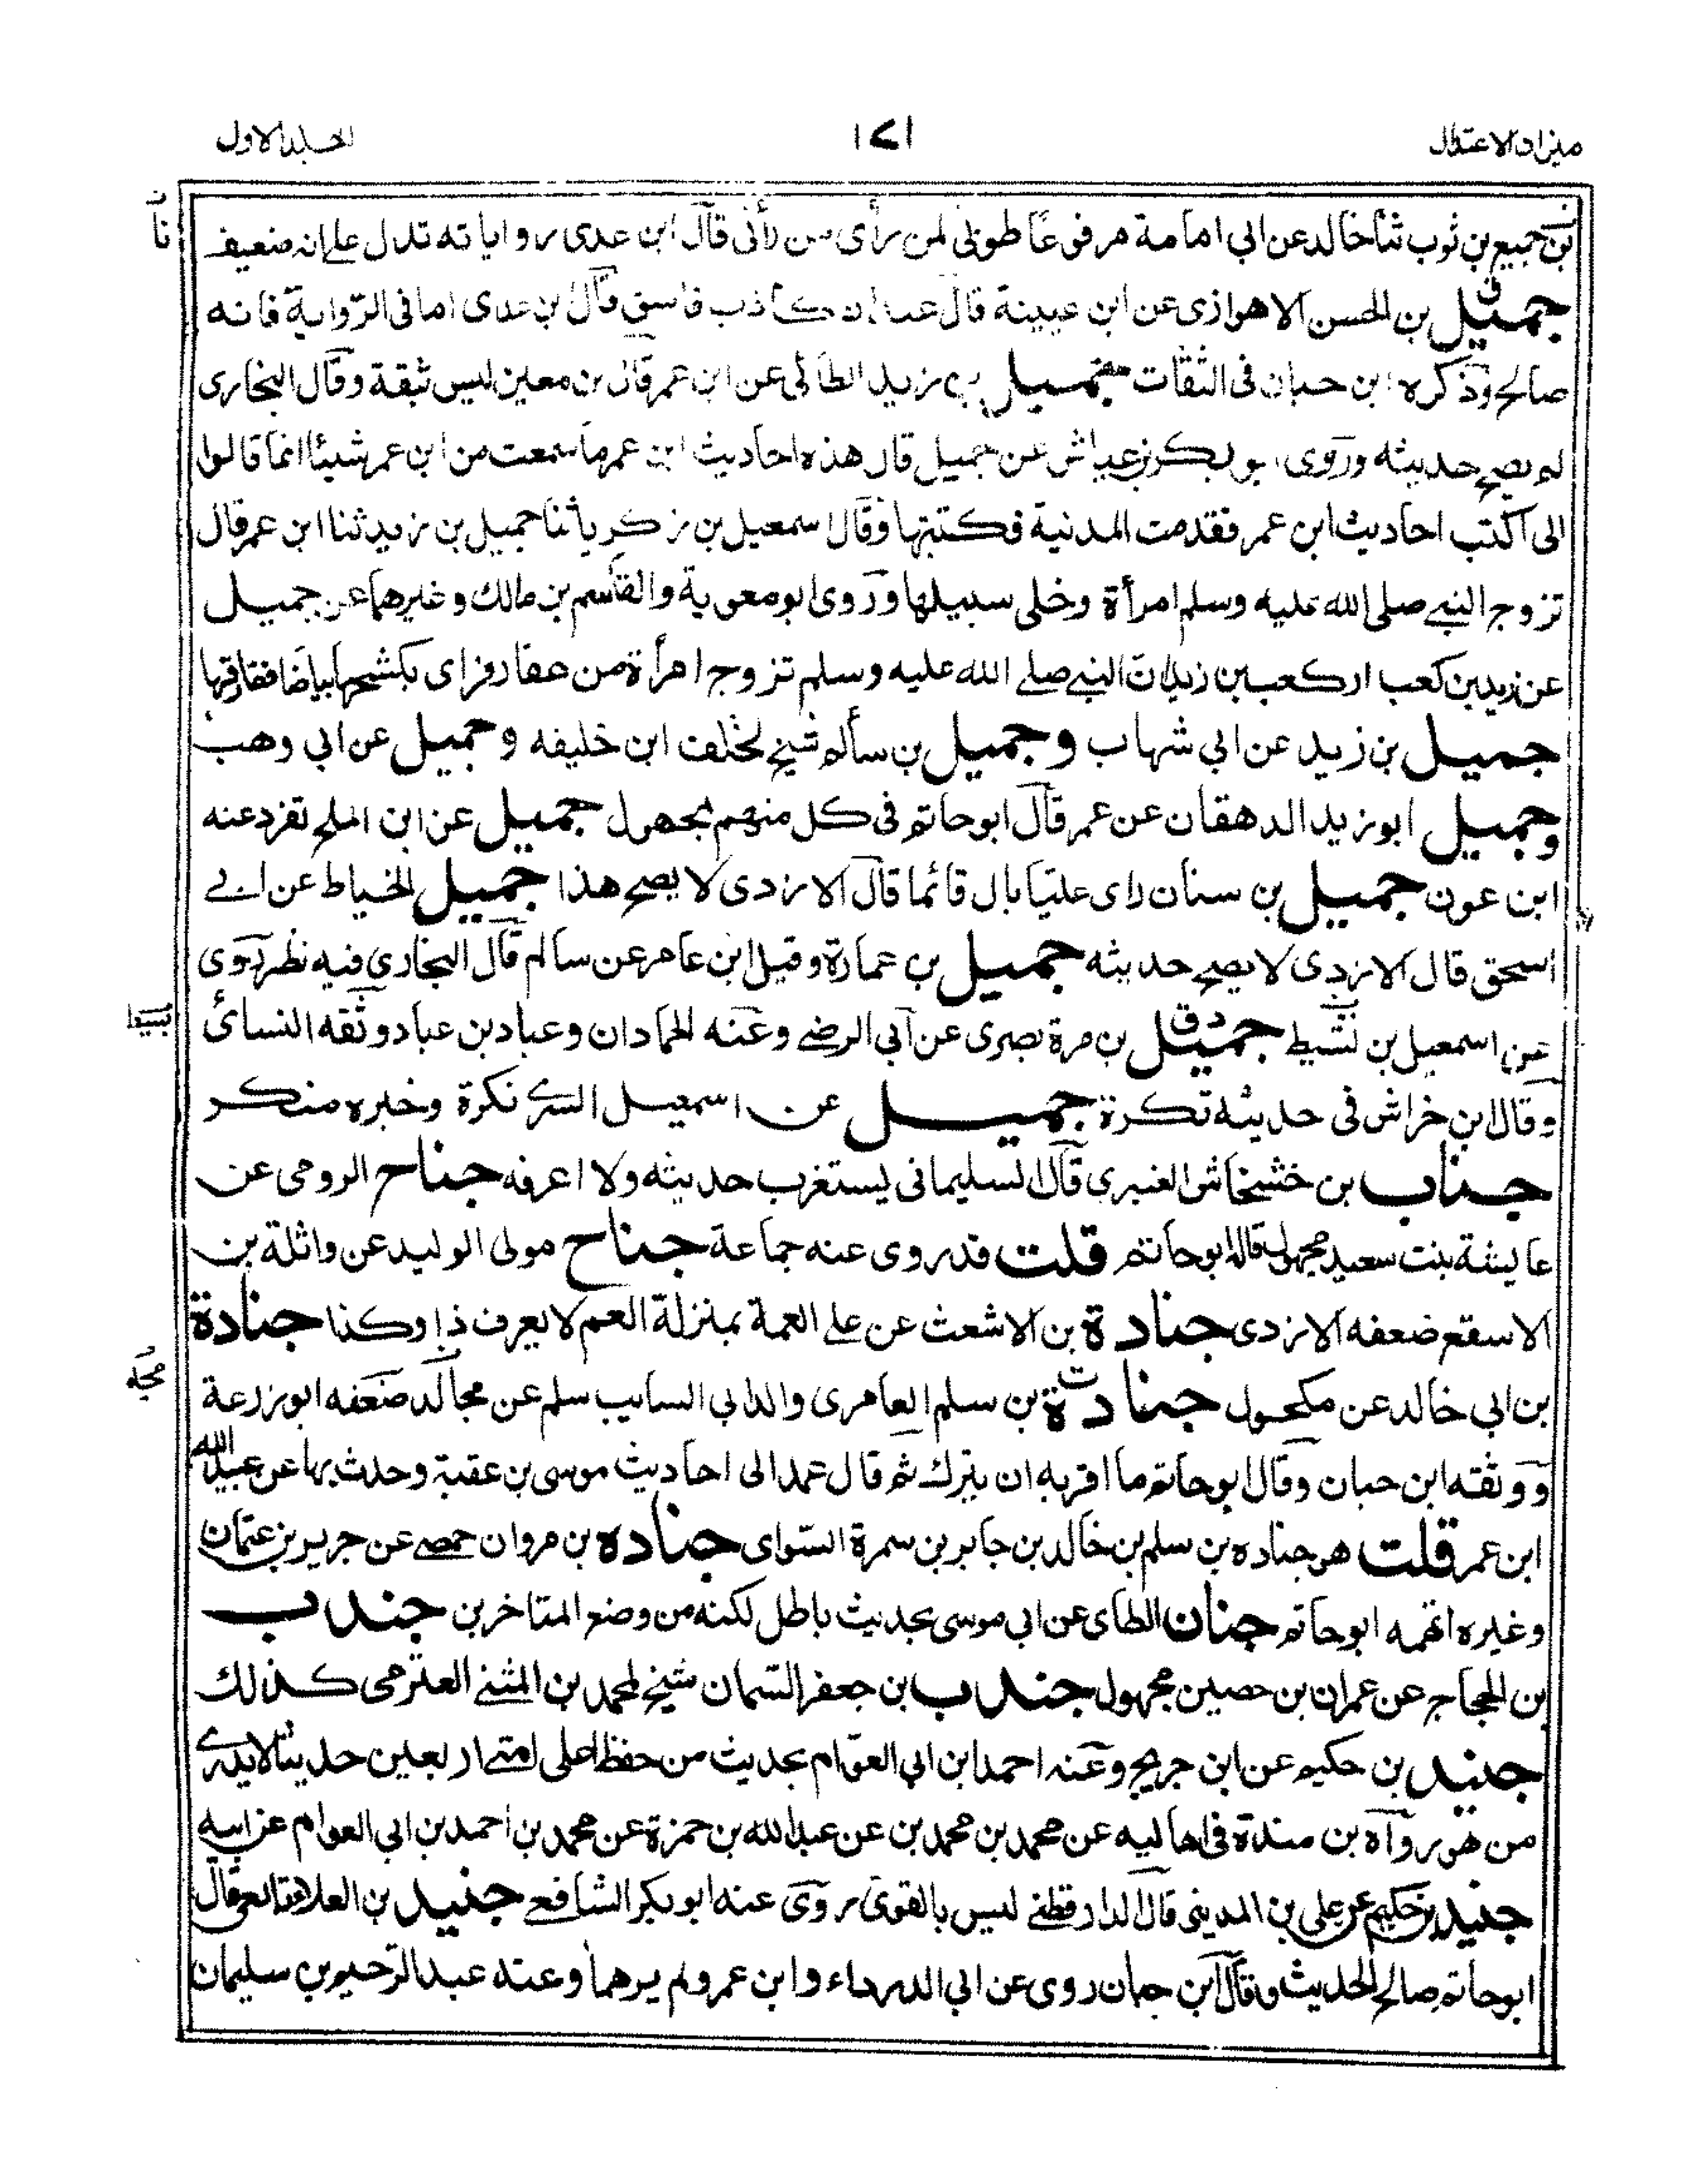 ميزان الاعتدال
١٧١
الجلد الاول
بن جميع بن ثوب ثنا خالد عن ابى امامة مرفوعا طوبى لمن رأى من رأنى قال ابن عدى رواياته تدل على انه ضعيف
جميل بن الحسن الاهوازى عن ابن عيينة قال عبدان كاذب فاسق وقال بن عدى اما فى الرواية فانه
صالح وذكره ابن حبان فى الثقات جميل بن زيد الطائى عن ابن عمر قال بن معين ليس ثقة وقال البخارى
لم يصح حديثه وروى ابو بكر بن عياش عن جميل قال هذه احاديث ابن عمر ما سمعت من ابن عمر شيئا انما قالوا
لى اكتب احاديث ابن عمر فقدمت المدنية فكتبتها وقال اسمعيل بن زكريا ثنا جميل بن زيد ثنا ابن عمر قال
تزوج النبى صلى الله عليه وسلم امرأة وخلى سبيلها وروى ابو معوية والقاسم بن مالك وغيرهما عن جميل
عن زيد بن كعب او كعب بن زيد ان النبى صلے الله عليه وسلم تزوج امرأة من غفار فراى بكشحها بياضا ففارقها
جميل بن زيد عن ابى شهاب وجميل بن سالم شيخ لخلف ابن خليفه وجميل عن ابى وهب
وجميل ابو زيد الدهقان عن عمر قال ابو حاتم فى كل منهم مجهول جميل عن ابن المليح تفرد عنه
ابن عون جميل بن سنان راى عليا بال قائما قال الازدى لا يصح هذا جميل الخياط عن ابے
اسحق قال الازدى لا يصح حديثه جميل بن عمارة وقيل ابن عامر عن سالم قال البخارى فيه نظر روى
عن اسمعيل بن نشيط جميل دق بن مرة بصرى عن ابى الوضے وعنه الحمادان وعباد بن عباد وثقه النسائ
وقال ابن خراش فى حديثه نكرة جميل عن اسمعيل السدے نكرة وخبره منكر
جناب بن خشخاش العنبرى قال السليمانى يستغرب حديثه ولا اعرفه جناح الرومى عن
عايشة بنت سعيد مجهول قاله ابو حاتم قلت قد روى عنه جماعة جناح مولى الوليد عن واثلة بن
الاسقع ضعفه الازدى جنادة بن الاشعث عن على العمة بمنزلة العم لا يعرف ذا وكذا جنادة
بن ابى خالد عن مكحول جنادة ت بن سلم العامرى والد ابى السايب سلم عن مجالد ضعفه ابو زرعة
ووثقه ابن حبان وقال ابو حاتم ما اقربه ان يترك ثم قال عمد الى احاديث موسى بن عقبة وحدث بها عن عبيد الله
ابن عمر قلت هو جناده بن سلم بن خالد بن جابر بن سمرة السواى جناده بن مروان حمصے عن جرير بن عثمان
وغيره اتهمه ابو حاتم جنان الطاى عن ابى موسى بحديث باطل لكنه من وضع المتاخرين جندب
بن الحجاج عن عمران بن حصين مجهول جندب بن جعفر السمان شيخ لمحمد بن المثنے العنزمى كذلك
جنيد بن حكيم عن ابن جريج وعنه احمد ابن ابى العوام بحديث من حفظ على امتى اربعين حديثا لا يدرے
من هو رواه بن مندة فى اماليه عن محمد بن محمد بن عن عبد الله بن حمزة عن محمد بن احمد بن ابى العوام عن ابيه
جنيد بن حكيم عن على بن المدينى قال الدارقطنے ليس بالقوى روى عنه ابو بكر الشافعے جنيد بن العلاء تابعى قال
ابو حاتم صالح الحديث وقال ابن حبان روى عن ابى الدرداء وابن عمر ولم يرهما وعنه عبد الرحيم بن سليمان